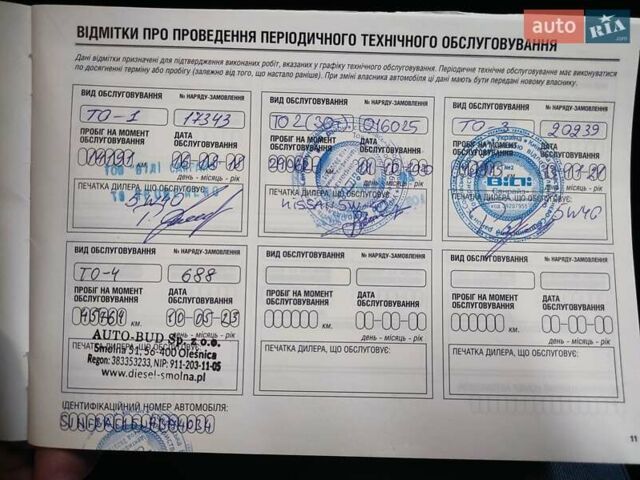 auto RIA.com
ВІДМІТКИ ПРО ПРОВЕДЕННЯ ПЕРІОДИЧНОГО ТЕХНІЧНОГО ОБСЛУГОВУВАННЯ
Дані відмітки призначені для підтвердження виконаних робіт, вказаних у графіку технічного обслуговування. Періодичне технічне обслуговування має виконуватися
по досягненні терміну або пробігу (залежно від того, що настало раніше). При зміні власника автомобіля ці дані мають бути передані новому власнику.
ВИД ОБСЛУГОВУВАННЯ № НАРЯДУ-ЗАМОВЛЕННЯ
ТО-1 17343
ПРОБІГ НА МОМЕНТ ОБСЛУГОВУВАННЯ
ДАТА ОБСЛУГОВУВАННЯ
КМ. день - місяць - рік
ПЕЧАТКА ДИЛЕРА, ЩО ОБСЛУГОВУЄ:
5W40
ВИД ОБСЛУГОВУВАННЯ № НАРЯДУ-ЗАМОВЛЕННЯ
ТО 2 016025
ПРОБІГ НА МОМЕНТ ОБСЛУГОВУВАННЯ
ДАТА ОБСЛУГОВУВАННЯ
ПЕЧАТКА ДИЛЕРА, ЩО
NISSAN 5W40
ВИД ОБСЛУГОВУВАННЯ № НАРЯДУ-ЗАМОВЛЕННЯ
ТО-3 20239
ПРОБІГ НА МОМЕНТ
ДАТА ОБСЛУГОВУВАННЯ
день - місяць - рік
ПЕЧАТКА
ОБСЛУГОВУЄ:
ВіДі
5W40
ВИД ОБСЛУГОВУВАННЯ № НАРЯДУ-ЗАМОВЛЕННЯ
ТО-4 688
ПРОБІГ НА МОМЕНТ ОБСЛУГОВУВАННЯ
ДАТА ОБСЛУГОВУВАННЯ
45764 КМ. 10-05-23
день - місяць - рік
ПЕЧАТКА ДИЛЕРА, ЩО ОБСЛУГОВУЄ:
AUTO-BUD Sp. z o.o.
Smolna 31, 56-400 Oleśnica
Regon: 383353233, NIP: 911-203-11-05
www.diesel-smolna.pl
ВИД ОБСЛУГОВУВАННЯ № НАРЯДУ-ЗАМОВЛЕННЯ
ПРОБІГ НА МОМЕНТ ОБСЛУГОВУВАННЯ
ДАТА ОБСЛУГОВУВАННЯ
КМ. день - місяць - рік
ПЕЧАТКА ДИЛЕРА, ЩО ОБСЛУГОВУЄ:
ВИД ОБСЛУГОВУВАННЯ № НАРЯДУ-ЗАМОВЛЕННЯ
ПРОБІГ НА МОМЕНТ ОБСЛУГОВУВАННЯ
ДАТА ОБСЛУГОВУВАННЯ
КМ. день - місяць - рік
ПЕЧАТКА ДИЛЕРА, ЩО ОБСЛУГОВУЄ:
ІДЕНТИФІКАЦІЙНИЙ НОМЕР АВТОМОБІЛЯ:
11